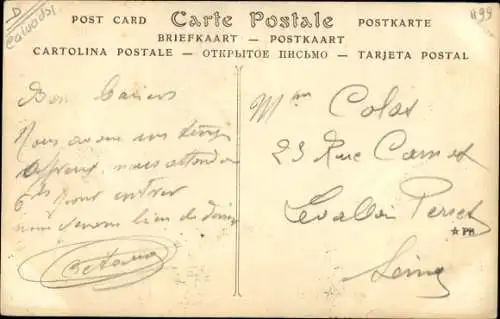 D
Calvados
1199
POST CARD Carte Postale POSTKARTE
BRIEFKAART — POSTKAART
CARTOLINA POSTALE — ОТКРЫТОЕ ПИСЬМО — TARJETA POSTAL
Bons Baisers
Nous avons un temps
affreux, nous attendons
pour entrer
nous venons de
Mme Colas
23 Rue Carnot
Levallois Perret
★ PH
Seine